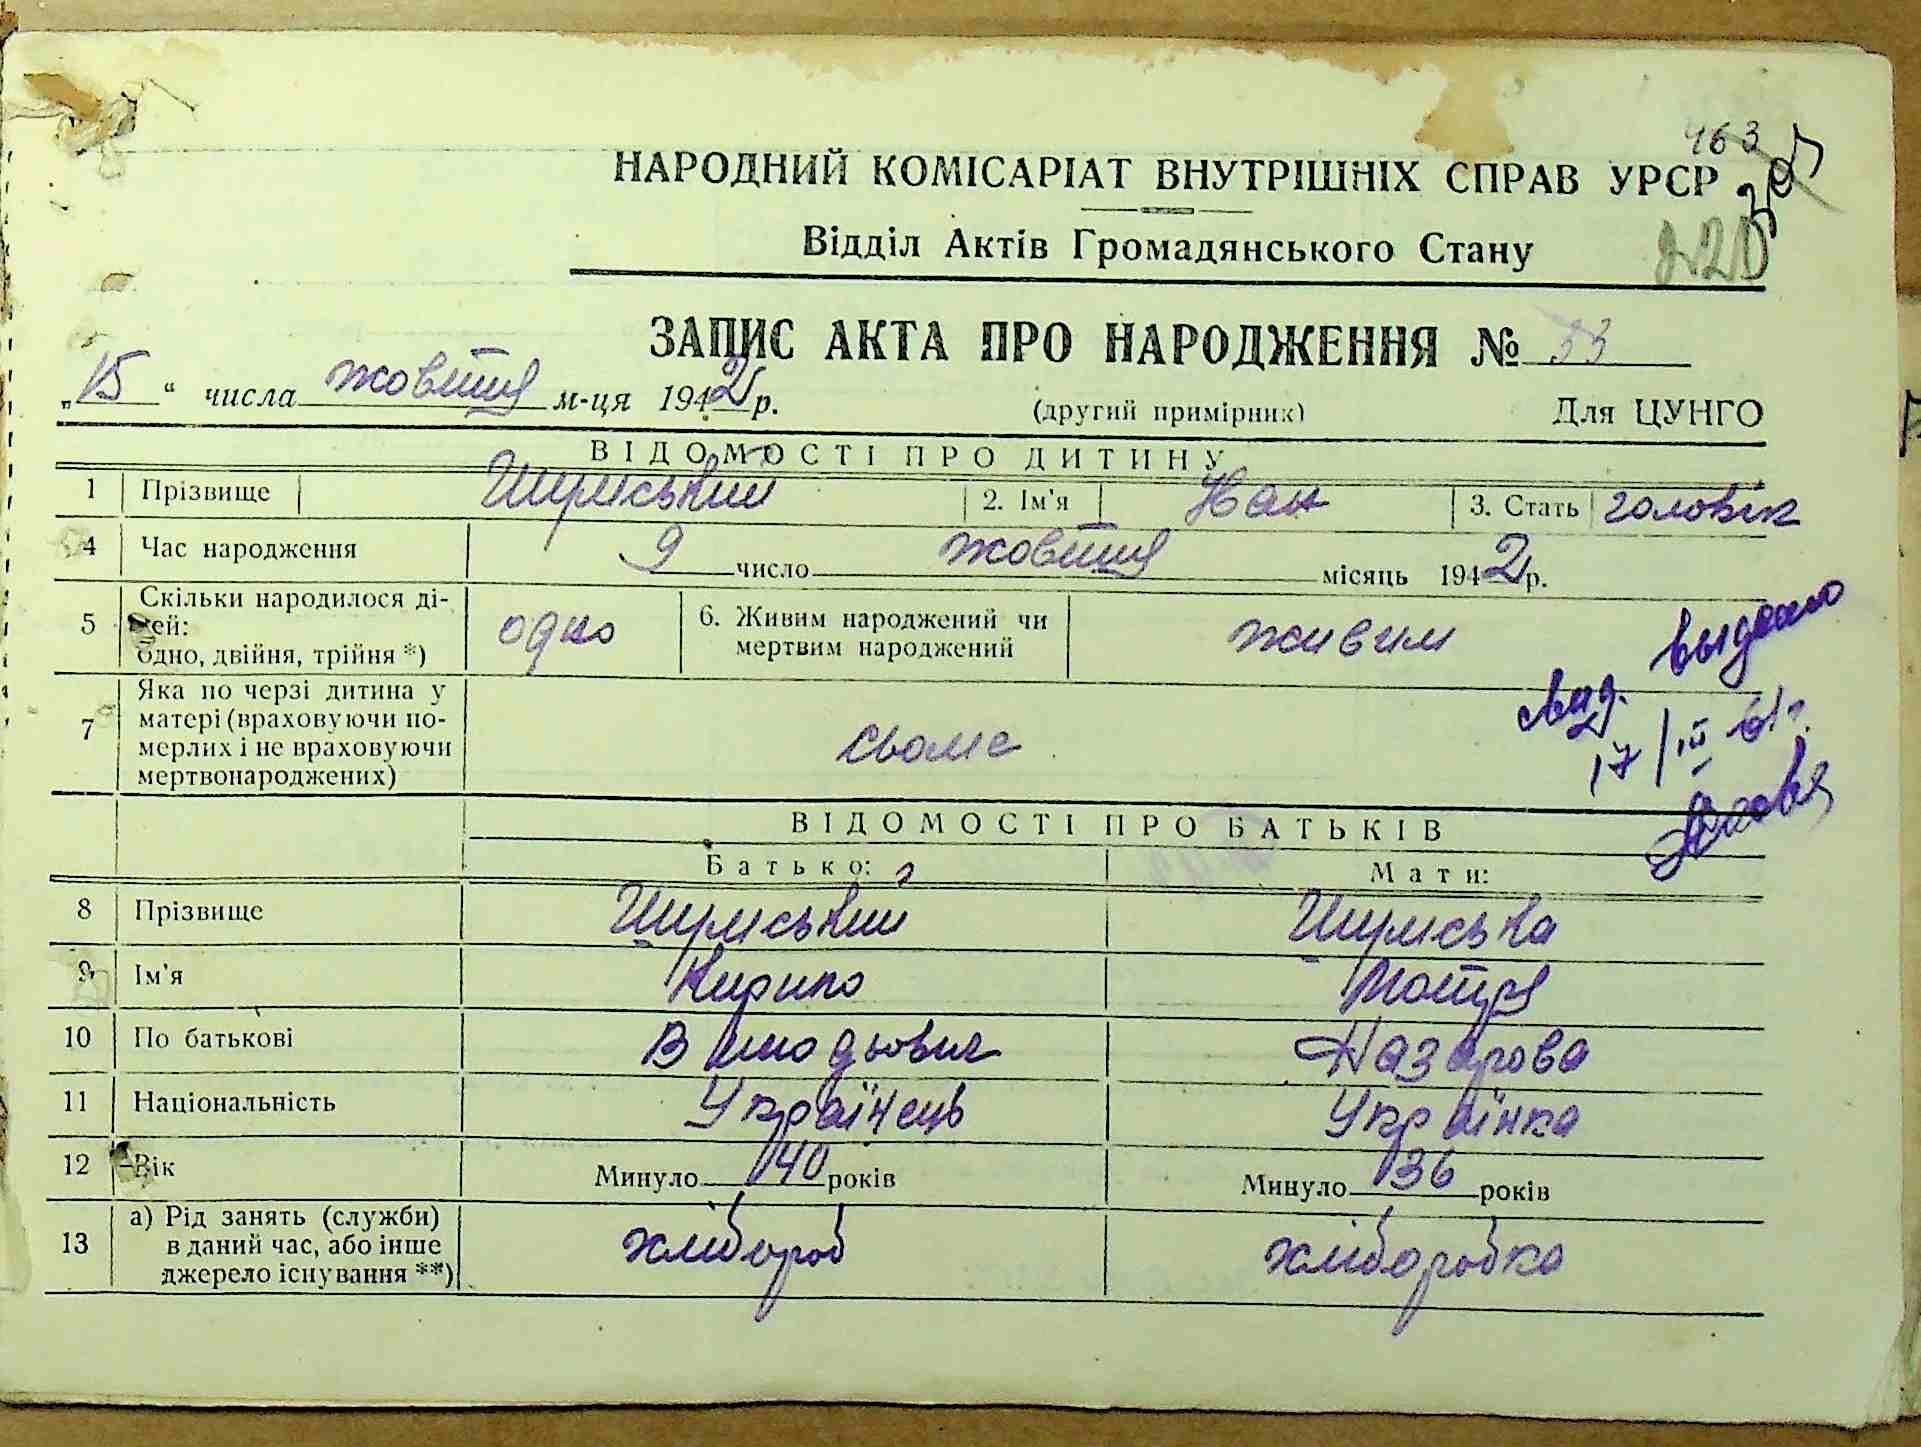 463
НАРОДНИЙ КОМІСАРІАТ ВНУТРІШНІХ СПРАВ УРСР
Відділ Актів Громадянського Стану
220
ЗАПИС АКТА ПРО НАРОДЖЕННЯ № 33
„15“ числа жовтня м-ця 1942 р. (другий примірник) Для ЦУНГО
ВІДОМОСТІ ПРО ДИТИНУ
1 Прізвище Шумський 2. Ім'я Іван 3. Стать чоловік
4 Час народження 9 число жовтня місяць 1942 р.
5 Скільки народилося дітей: одно, двійня, трійня *) одно 6. Живим народжений чи мертвим народжений живим
выдано
свид.
17/III 61г.
7 Яка по черзі дитина у матері (враховуючи померлих і не враховуючи мертвонароджених) сьоме
ВІДОМОСТІ ПРО БАТЬКІВ
Батько: Мати:
8 Прізвище Шумський Шумська
9 Ім'я Кирило Мотря
10 По батькові Назарова
11 Національність Українець Українка
12 Вік Минуло 40 років Минуло 36 років
13 а) Рід занять (служби) в даний час, або інше джерело існування **) хлібороб хліборобка